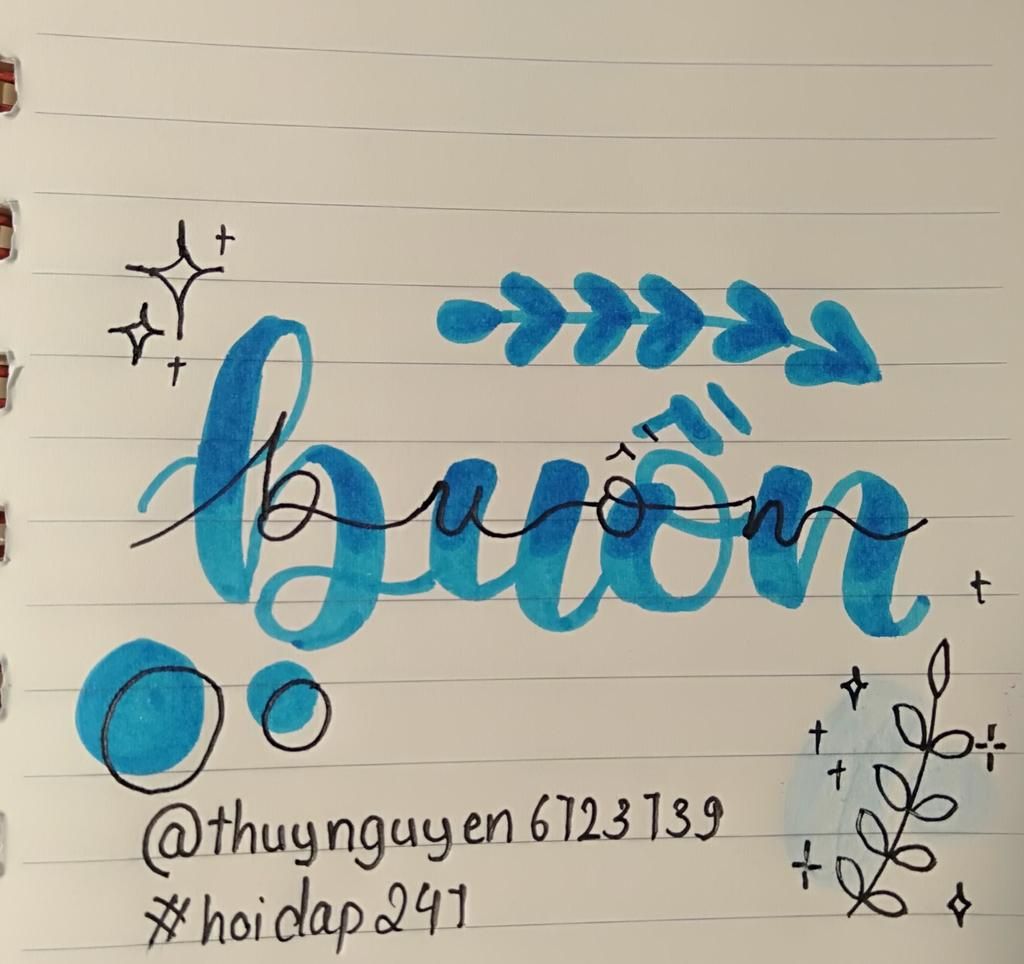 buồn
buồn
@thuynguyen6723739
#hoidap247